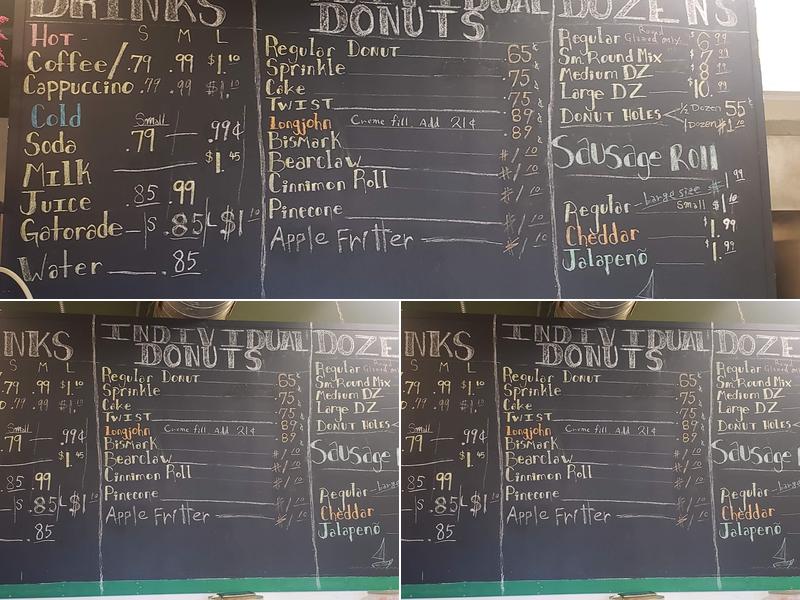 DRINKS
S M L
Hot -
Coffee/ .79 .99 $1.10
Cappuccino .79 .99 $1.10
Cold
Small
Soda .79 — .99¢
Milk $1.45
Juice .85 .99
Gatorade - S .85 L $1.10
Water .85
INDIVIDUAL
DONUTS
Regular Donut .65¢
Sprinkle .75
Cake .75
Twist .89
Longjohn Creme fill Add 21¢ .89
Bismark $1.10
Bearclaw $1.10
Cinnimon Roll $1.10
Pinecone $1.10
Apple Fritter $1.10
DOZENS
Regular Round Glazed mix $6.99
Sm. Round Mix $7.99
Medium DZ
Large DZ
Donut Holes ½ Dozen 55¢
1 Dozen $1.10
Sausage Roll
Large size $1.99
Regular Small $1.10
Cheddar $1.99
Jalapeno $1.99
NKS
S M L
.79 .99 $1.10
.79 .99 $1.10
Small
.79 — .99¢
$1.45
.85 .99
S .85 L $1.10
.85
INDIVIDUAL
DONUTS
Regular Donut .65¢
Sprinkle .75
Cake .75
Twist .89
Longjohn Creme fill Add 21¢ .89
Bismark $1.10
Bearclaw $1.10
Cinnimon Roll $1.10
Pinecone $1.10
Apple Fritter $1.10
DOZE
Regular
Sm. Round Mix
Medium DZ
Large DZ
Donut Holes
Sausage
Regular
Cheddar
Jalapeno
NKS
S M L
.79 .99 $1.10
.79 .99 $1.10
Small
.79 — .99¢
$1.45
.85 .99
S .85 L $1.10
.85
INDIVIDUAL
DONUTS
Regular Donut .65¢
Sprinkle .75
Cake .75
Twist .89
Longjohn Creme fill Add 21¢ .89
Bismark $1.10
Bearclaw $1.10
Cinnimon Roll $1.10
Pinecone $1.10
Apple Fritter $1.10
DOZE
Regular
Sm. Round Mix
Medium DZ
Large DZ
Donut Holes
Sausage
Regular
Cheddar
Jalapeno